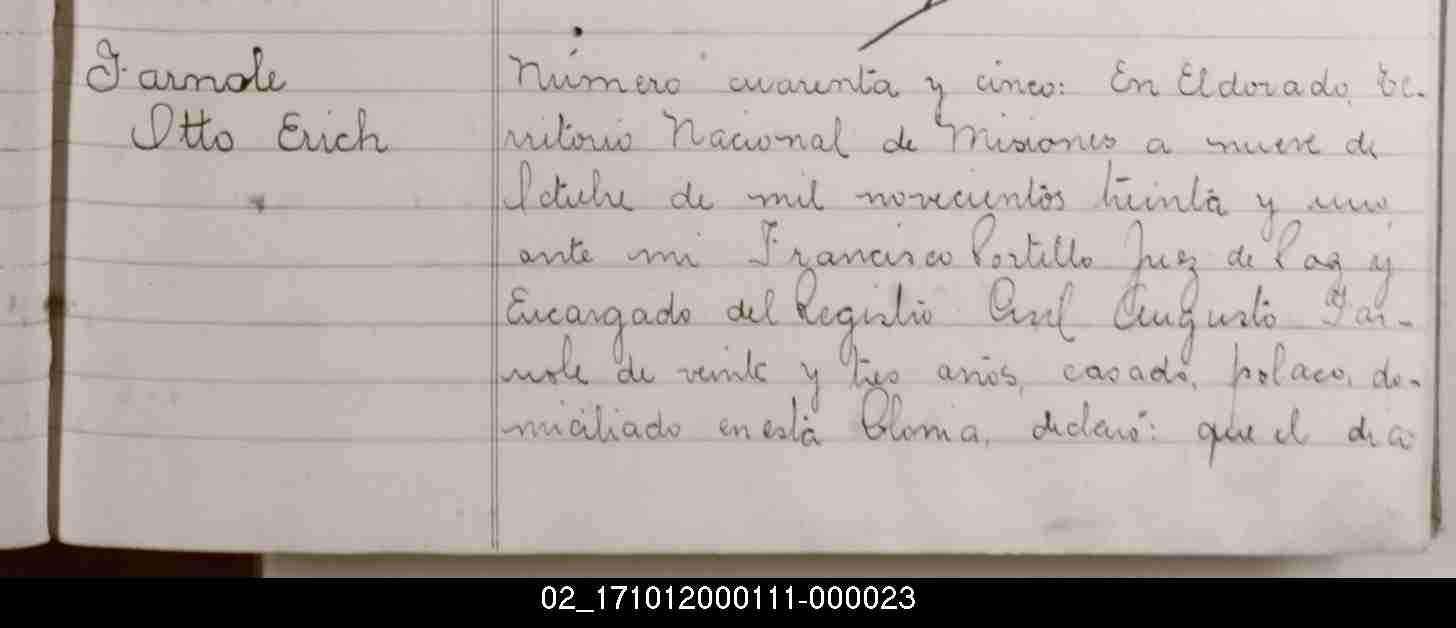 Farnole
Otto Erich
Número cuarenta y cinco: En Eldorado, Te-
rritorio Nacional de Misiones a nueve de
Octubre de mil novecientos treinta y uno,
ante mi Francisco Portillo Juez de Paz y
Encargado del Registro Civil Augusto Far-
nole de veinte y tres años, casado, polaco, do-
miciliado en esta Colonia, declaró: que el dia
02_171012000111-000023